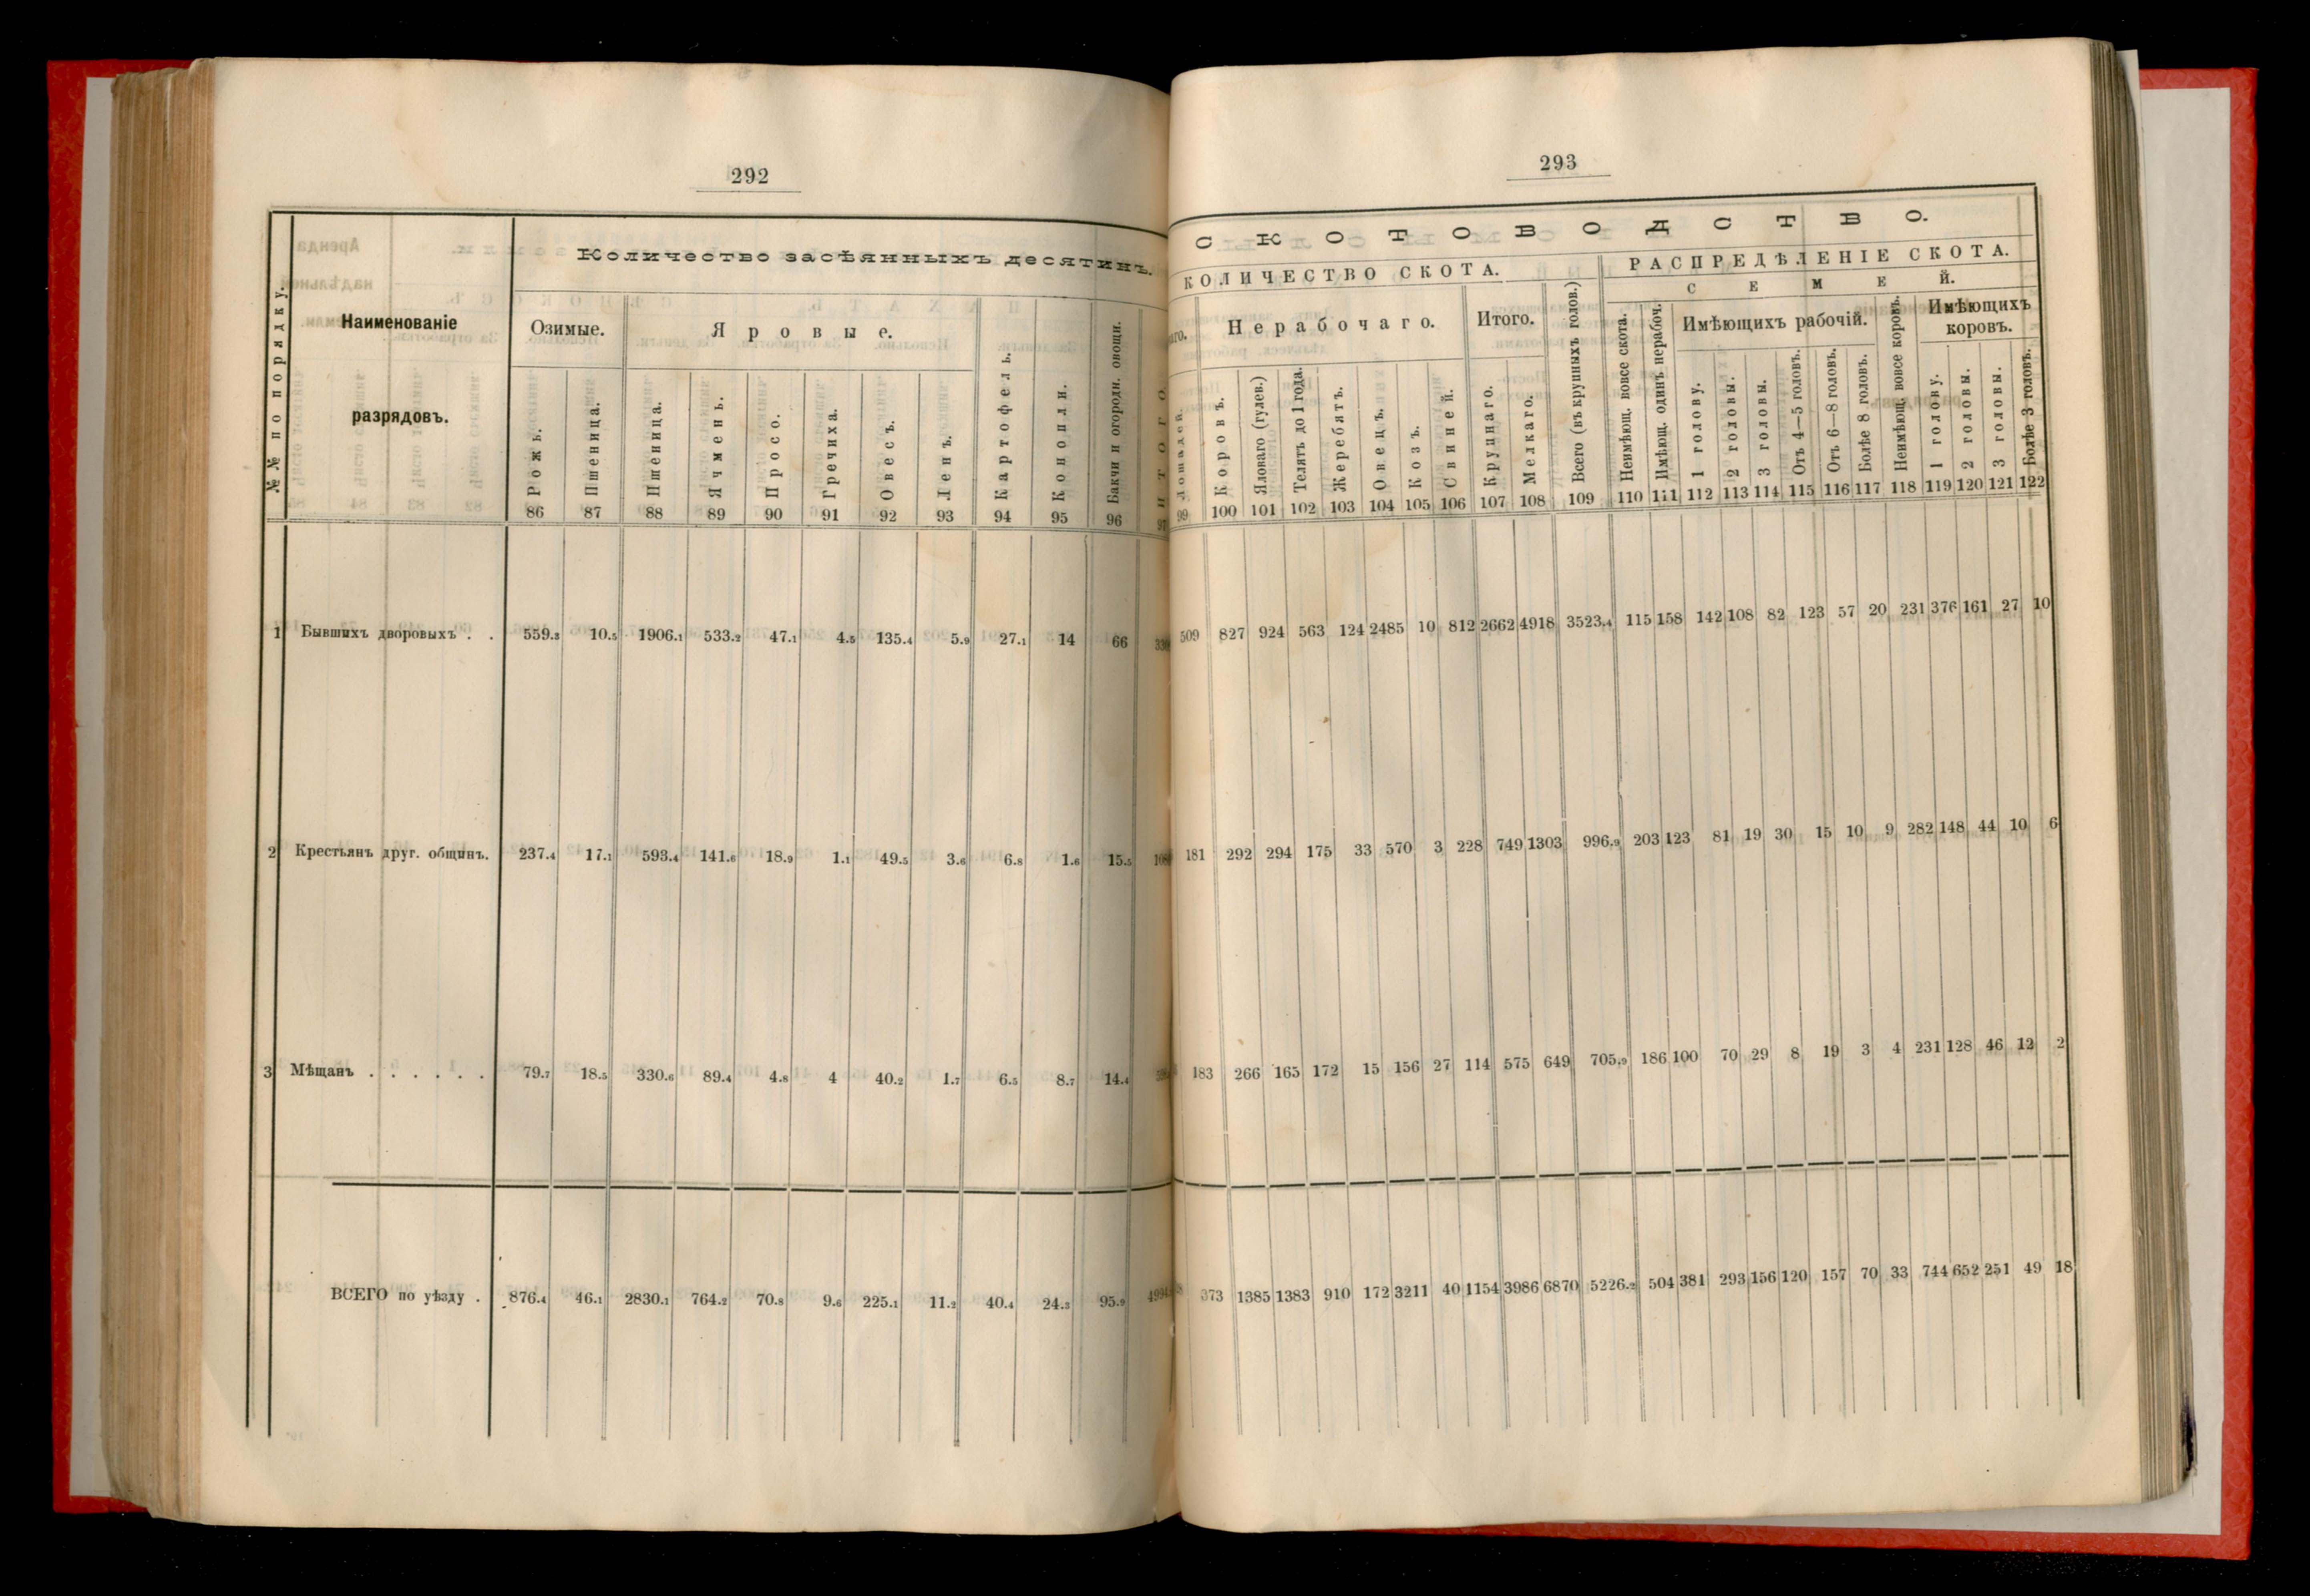 292
№№ по порядку.
Наименованіе
разрядовъ.
Количество засѣянныхъ десятинъ.
Озимые.
Яровые.
Рожь.
Пшеница.
Пшеница.
Ячмень.
Просо.
Гречиха.
Овесъ.
Ленъ.
Картофель.
Конопли.
Бакчи и огородн. овощи.
Итого
86 87 88 89 90 91 92 93 94 95 96 97
1 Бывшихъ дворовыхъ . . 559.3 10.5 1906.1 533.2 47.1 4.5 135.4 5.9 27.1 14 66
2 Крестьянъ друг. общинъ. 237.4 17.1 593.4 141.6 18.9 1.1 49.5 3.6 6.8 1.6 15.5
3 Мѣщанъ . . . . . . 79.7 18.5 330.6 89.4 4.8 4 40.2 1.7 6.5 8.7 14.4
ВСЕГО по уѣзду . 876.4 46.1 2830.1 764.2 70.8 9.6 225.1 11.2 40.4 24.3 95.9
293
СКОТОВОДСТВО.
КОЛИЧЕСТВО СКОТА.
РАСПРЕДѢЛЕНІЕ СКОТА.
СЕМЕЙ.
Нерабочаго.
Итого.
Всего (въ крупныхъ голов.)
Неимѣющ. вовсе скота.
Имѣющ. одинъ нерабоч.
Имѣющихъ рабочій.
Неимѣющ. вовсе коровъ.
Имѣющихъ
коровъ.
Лошадей.
Коровъ.
Яловаго (гулев.)
Телятъ до 1 года.
Жеребятъ.
Овецъ.
Козъ.
Свиней.
Крупнаго.
Мелкаго.
1 голову.
2 головы.
3 головы.
Отъ 4—5 головъ.
Отъ 6—8 головъ.
Болѣе 8 головъ.
1 голову.
2 головы.
3 головы.
Болѣе 3 головъ.
99 100 101 102 103 104 105 106 107 108 109 110 111 112 113 114 115 116 117 118 119 120 121 122
509 827 924 563 124 2485 10 812 2662 4918 3523.4 115 158 142 108 82 123 57 20 231 376 161 27 10
181 292 294 175 33 570 3 228 749 1303 996.9 203 123 81 19 30 15 10 9 282 148 44 10 6
183 266 165 172 15 156 27 114 575 649 705.9 186 100 70 29 8 19 3 4 231 128 46 12 2
373 1385 1383 910 172 3211 40 1154 3986 6870 5226.2 504 381 293 156 120 157 70 33 744 652 251 49 18